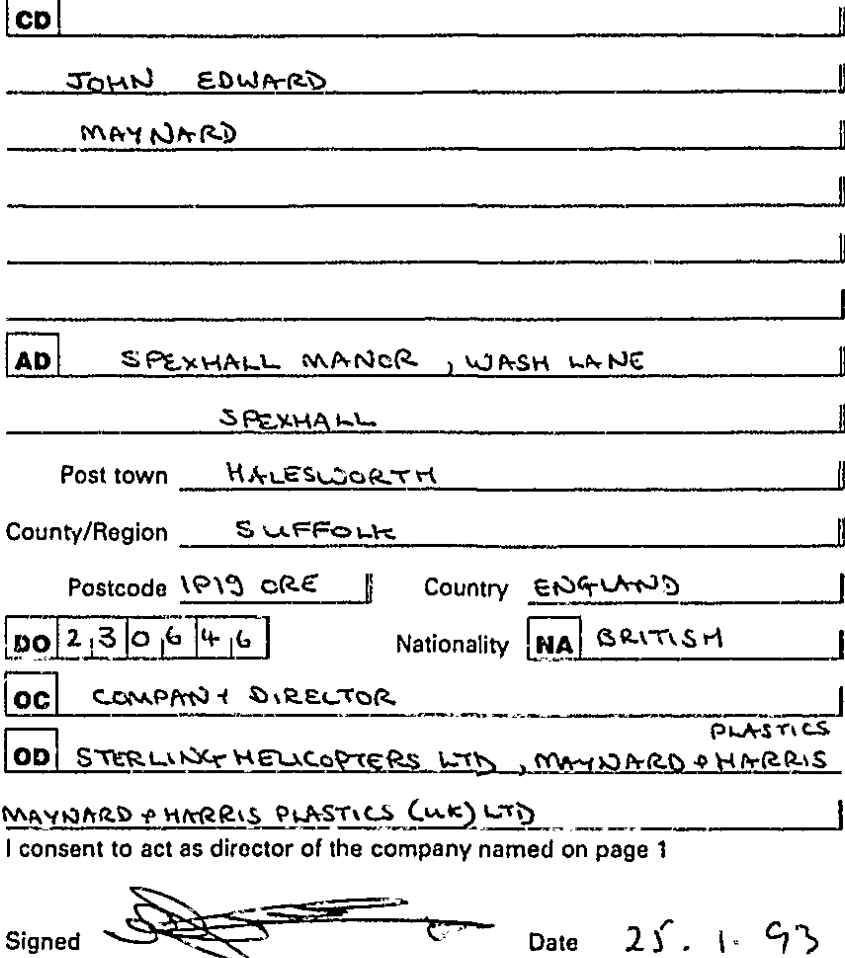 CD
JOHN EDWARD
MAYNARD
AD SPEXHALL MANOR, WASH LANE
SPEXHALL
Post town HALESWORTH
County/Region SUFFOLK
Postcode IP19 0RE Country ENGLAND
DO 23 06 46 Nationality NA BRITISH
OC COMPANY DIRECTOR
PLASTICS
OD STERLING HELICOPTERS LTD, MAYNARD & HARRIS
MAYNARD & HARRIS PLASTICS (UK) LTD
I consent to act as director of the company named on page 1
Signed Date 25. 1. 93